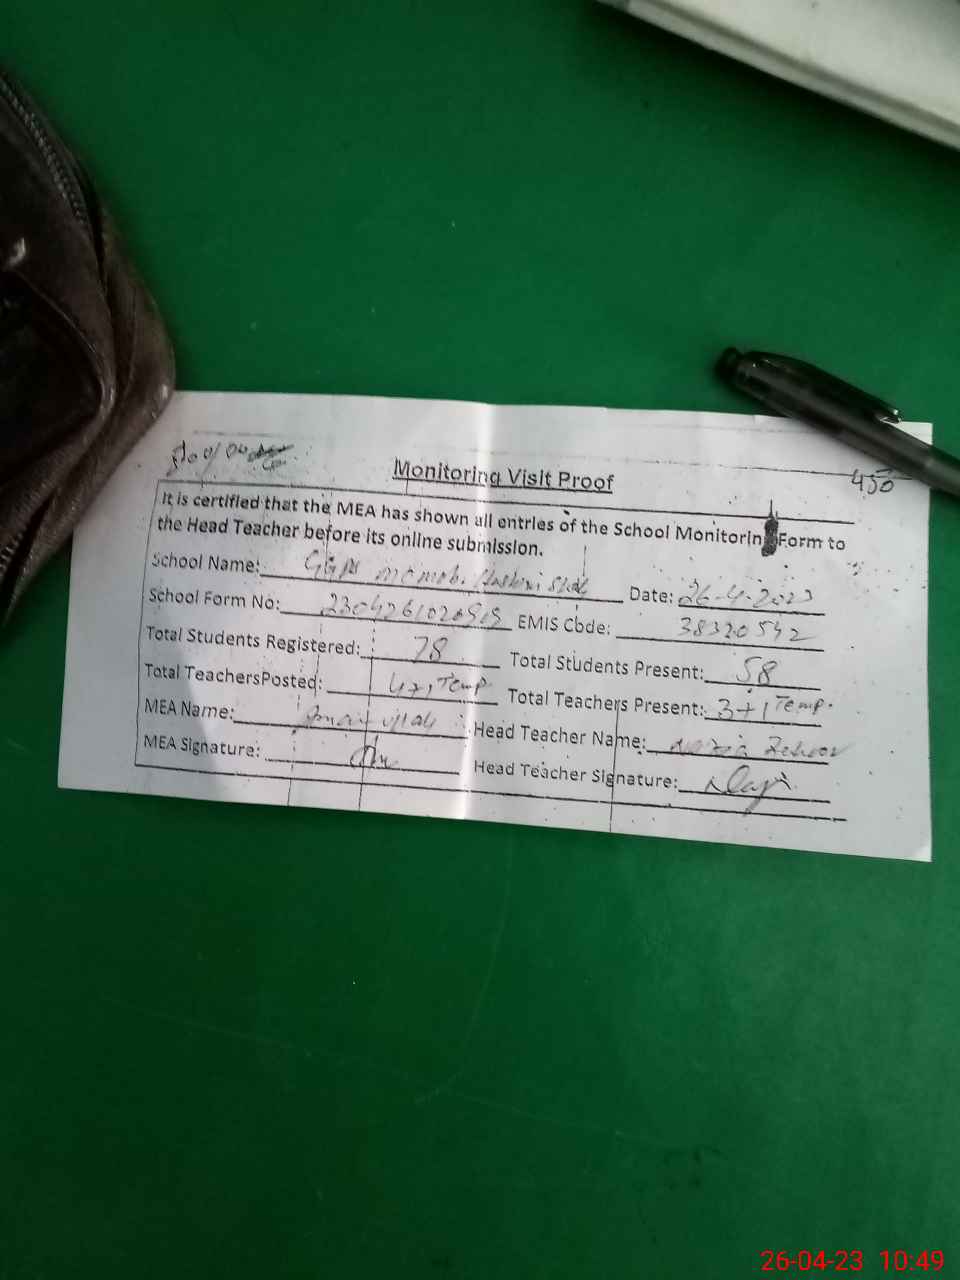 450
Monitoring Visit Proof
It is certified that the MEA has shown all entries of the School Monitorin Form to
the Head Teacher before its online submission.
School Name: GGPS Hashmi Date: 26-4-2023
School Form No: EMIS Code: 38320542
Total Students Registered: 78 Total Students Present: 58
Total TeachersPosted: 4+1 Temp Total Teachers Present: 3+1 Temp.
MEA Name: Head Teacher Name:
MEA Signature: Head Teacher Signature:
26-04-23 10:49